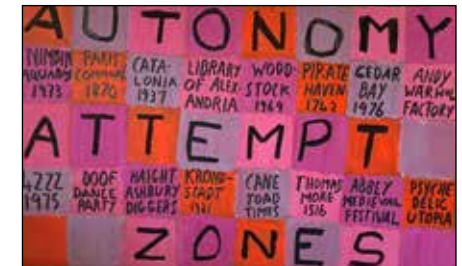 AUTONOMY
NIMBIN AQUARIUS 1973 PARIS COMMUNE 1870 CATA-LONIA 1937 LIBRARY OF ALEX-ANDRIA WOOD-STOCK 1969 PIRATE HAVEN 1762 CEDAR BAY 1976 ANDY WARHOL FACTORY
ATTEMPT
4ZZZ 1975 DOOF DANCE PARTY HAIGHT ASHBURY DIGGERS KROND-STADT 1921 CANE TOAD TIMES THOMAS MORE 1516 ABBEY MEDIEVAL FESTIVAL PSYCHE DELIC UTOPIA
ZONES